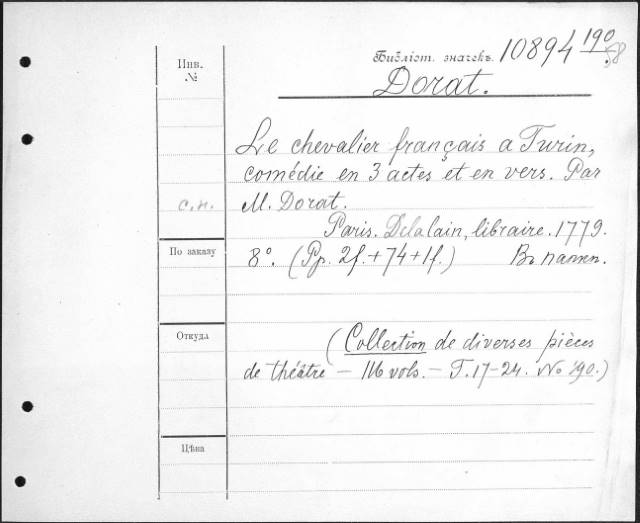 Инв.
№
Библіот. значекъ. 10894 190/58
Dorat.
Le chevalier français a Turin,
comédie en 3 actes et en vers. Par
с.п. M. Dorat.
Paris. Delalain, libraire. 1779.
По заказу
8°. (Pp. 2f. + 74 + 1f.) Въ папкѣ.
Откуда
(Collection de diverses pièces
de théâtre — 116 vols. — T. 17-24. No 190.)
Цѣна